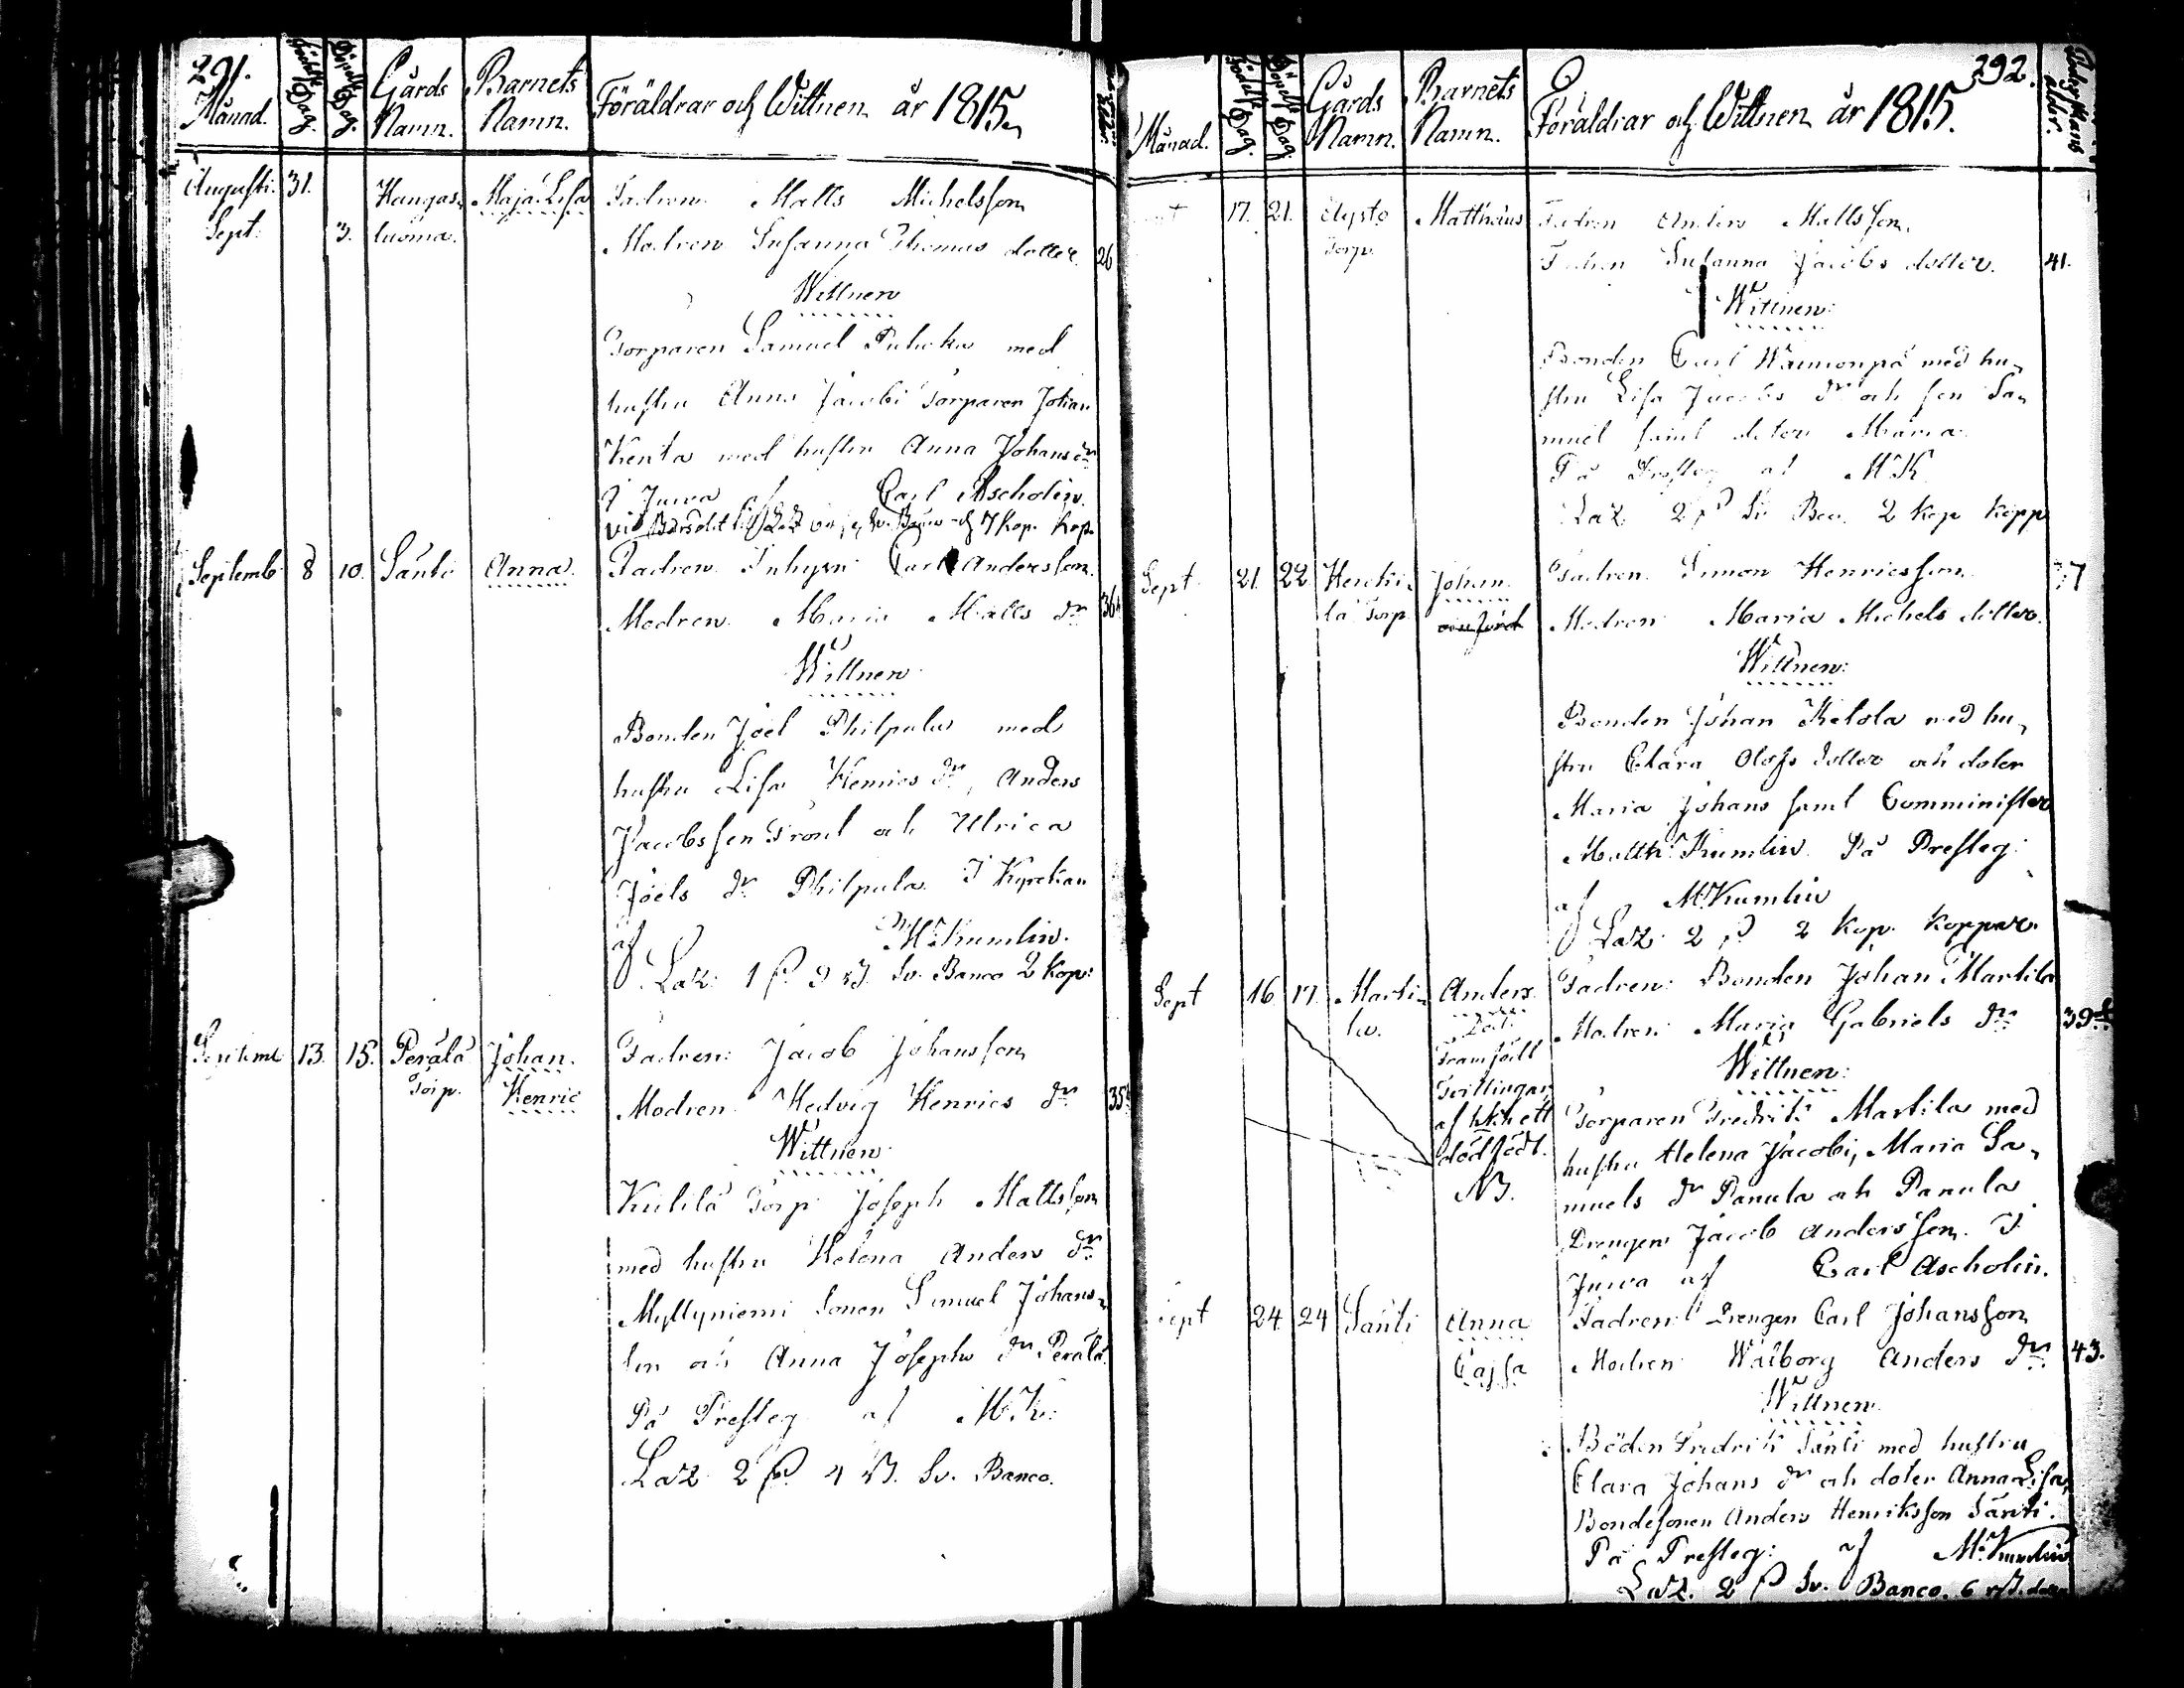 291.
Månad.
Födelse Dag.
Döpelse Dag.
Gårds Namn.
Barnets Namn.
Föräldrar och Wittnen år 1815.
Augusti. 31. Kangas- Maja Lisa Fadren Matts Michelsson
Sept: 3. luoma. Modren Susanna Thomas dotter 26
Wittnen
Torparen Samuel med
hustru Anna Jacobi Torparen Johan
Kenta med hustru Anna Johans dr
J Juva Carl Ascholin.
7 Kop. Kop.
Septemb 8 10. Santi Anna. Fadren Inhysn Carl Andersson.
Modren Maria Matts dr 36
Wittnen
Bonden Joel Philpula med
hustru Lisa Henrics dr, Anders
Jacobsson och Ulrica
Joels dr Philpula. I Kyrckan
af M. Kumlin.
Laz: 1 ß 9 Sv. Banco 2 Kop:
Septemb 13. 15. Perälä Johan. Fadren: Jacob Johansson
Torp. Henric Modren Hedvig Henrics dr 35
Wittnen
Torp Joseph Mattsson
med hustru Helena Anders dr
Myllyniemi Sonen Samuel Johans-
son och Anna Josephs dr Perälä.
På Presteg af M. K:
Laz 2 ß 4 Sv. Banco.
292.
Månad.
Födelse Dag.
Döpelse Dag.
Gårds Namn.
Barnets Namn.
Föräldrar och Wittnen år 1815.
ålder.
17. 21. Torp. Matthäus Fadren Anders Mattsson.
Susanna Jacobs dotter. 41.
Wittnen:
Bonden Carl med hu-
stru Lisa Jacobs dr och son Sa-
muel samt doter Maria
På Presteg af M K
Laz 2 ß Sv Bco. 2 Kop Kopp
Sept 21. 22 Johan Fadren Simon Henricsson 37
la Torp Modren Maria Michels dotter.
Wittnen:
Bonden Johan Ketola med hu-
stru Clara Olofs dotter och doter
Maria Johans samt Comminister
Matth: Kumlin På Presteg:
af M: Kumlin
Laz 2 ß 2 Kop. Koppar.
Sept 16 17. Marti- Anders. Fadren: Bonden Johan Martila
la. Modren: Maria Gabriels dr 39
Framfödt Wittnen:
Tvillingar, Torparen Fredrik Martila med
af hvilk ett hustru Helena Jacobi, Maria Sa-
dödfödt. muels dr Panula och Panula
NB. Drengen Jacob Andersson. J
Juva af Carl Ascholin.
Sept 24 24 Santi Anna Fadren: Drengen Carl Johansson
Cajsa Modren Walborg Anders dr 43.
Wittnen
Böden Fredrik Santi med hustru
Clara Johans dr och doter Anna Lisa,
Bondesonen Anders Henriksson Santi.
På Presteg: af M: Kumlin
Laz. 2 ß Sv. Banco. 6